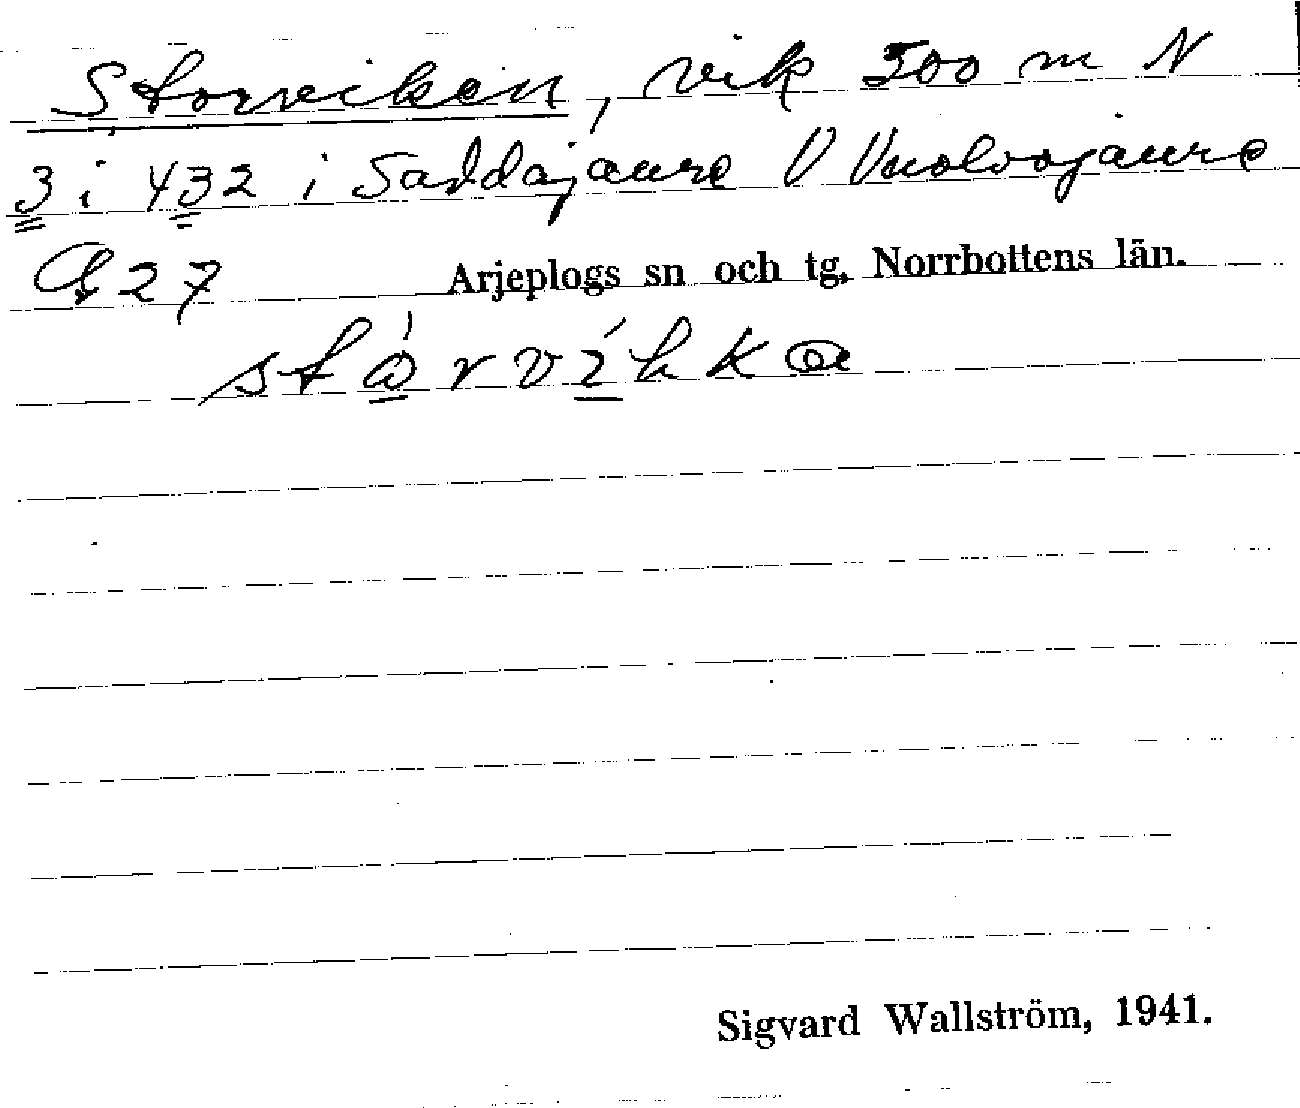 Storviken, vik 500 m N
3 i 432 i Saddajaure V Vuolvojaure
27 Arjeplogs sn och tg, Norrbottens län.
Sigvard Wallström, 1941.